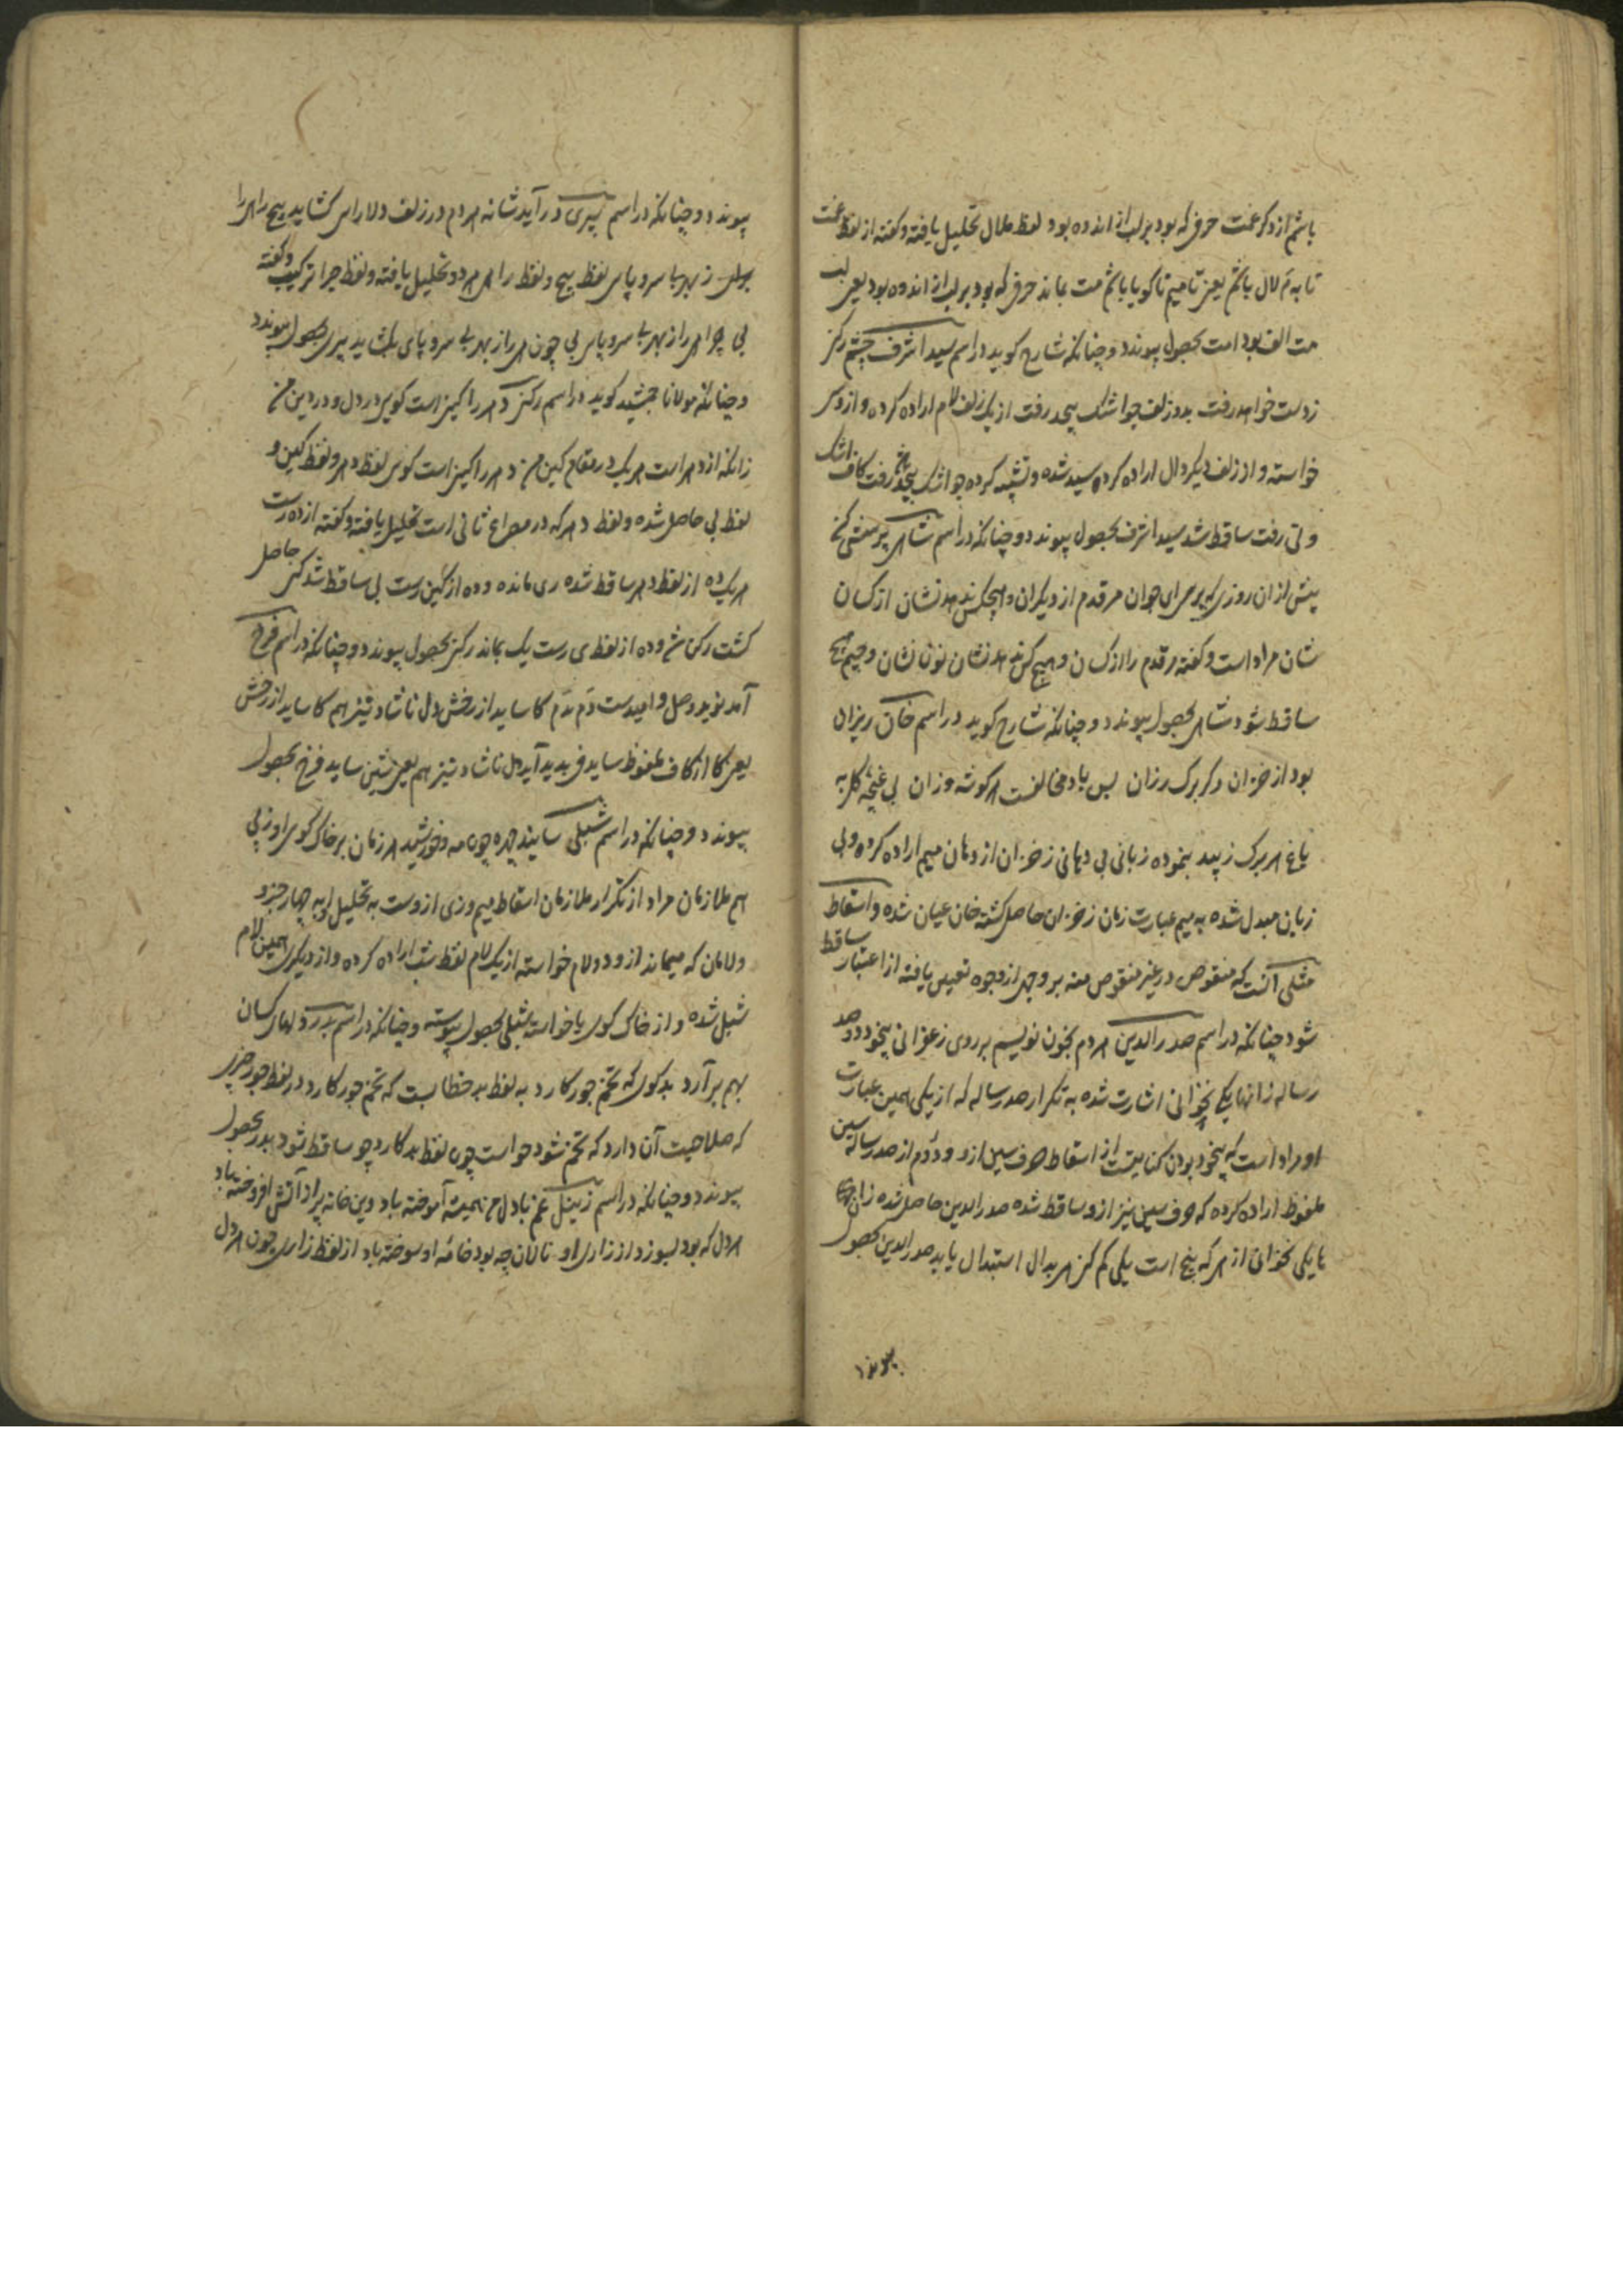 باشم از ذکر غمت حرفی که بود بر لب از اندوه بود لفظ ملال تحلیل یافته و گفته از لفظ غمت
تا به م لال باشم یعنی تا میم تا گویا باشم مت بماند حرفی که بود بر لب از اندوه بود یعنی لب
مت الف بود امت بحصول پیوندد و چنانکه شارح کوید در اسم سید اشرف چشم
ز دست خواهد رفت بدو زلف چو اشک بیحد رفت از یک زلف لام اراده کرده و از وی
خواسته و از زلف دیکر دال اراده کرده سید شده و تشبیه کرده چو اشک بیحد رفت کاف اشک
ولی رفت ساقط شد سید اشرف بحصول پیوندد و چنانکه در اسم شاهی
پیش از ان روزی که بر سرای جوان هر قدم از دیکران و هیچکس ندهد نشان از کسان
شان مراد است و گفته هر قدم را از کسان و هیچ کس ندهد نشان نون نشان و جیم هیچ
ساقط شود شاهی بحصول پیوندد و چنانکه شارح کوید در اسم خان ریزان
بود از خزان دکر برک رزان بس باد مخالفست هر کوشه وزان بی غنچه کل به
باغ هر برک ز بید بنموده زبانی بی دهانی ز خزان از دهان میم اراده کرده ولی
زبان مبدل شده به میم عبارت زبان ز خزان حاصل کشته خان عیان شده و اسقاط
مثلی آنست که منقوص در غیر منقوص منه بر وجهی از وجوه تعیین یافته از اعتبار ساقط
شود چنانکه در اسم صدر الدین هر دم بخون نویسم بر روی زعفرانی بیخود دو صد
رساله زانها یکی نخوانی اشارت شده به تکرار صد رساله که از یکی همین عبارت
او مراد است که بیخود بودن کنایتست از اسقاط حرف سین ازو و دوم از صد رساله سین
ملفوظ اراده کرده که حرف سین نیز ازو ساقط شده صدر الدین حاصل شده زانها
یکی نخوانی از هی که پنج است یکی کم کن هی بدال استبدال یابد صدر الدین بحصول
پیوند
پیوندد و چنانکه در اسم پیری در آید شانه هر دم در زلف دلارای کشاید پیچ راهی را
برای ز بهر بی سر و پای لفظ پیچ و لفظ راهی هر دو تحلیل یافته و لفظ چرا ترکیب و گفته
پی چرا هی را ز بهر بی سر و پای پی چون هی را ز بهر بی سر و پای بکشاید پیری بحصول پیوندد
و چنانکه مولانا جمشید کوید در اسم رکن دهر را کین است کویی در دل و در دین من
زانکه از دهر است هر یک در مقام کین من دهر را کین است کوی لفظ دهر و لفظ کین و
لفظ بی حاصل شده و لفظ دهر که در مصراع ثانی است تحلیل یافته و گفته از ده رست
هر یک ده از لفظ دهر ساقط شده ری مانده و ده از کین رست بی ساقط شد کن حاصل
کشت رکن من و ده از لفظ ی رست یک بماند رکن بحصول پیوندد و چنانکه در اسم فرخ
آمد نوید وصل و امیدست دم بدم کاساید از رخش دل ناشاد نیز هم کاساید از رخش
یعنی کا از کاف ملفوظ ساید فر پدید آید دل ناشاد نیز هم یعنی شین ساید فرخ بحصول
پیوندد و چنانکه در اسم شبلی سایند چهره چون مه و خورشید هر زمان بر خاک کوی او ز پی
هم ملازمان مراد از تکرار ملازمان اسقاط میم و زی ازوست به تحلیل او به چهار جزو
و لامان که میماند ازو دو لام خواسته از یک لام لفظ شب اراده کرده و از دیکری همین لام
شبل شده و از خاک کوی یا خواسته شبلی بحصول پیوسته و چنانکه در اسم بدر
بهم برآرد بد کوی که تخم جور کارد به لفظ بد خطابست که تخم جور کارد در لفظ جور حرفی
که صلاحیت آن دارد که تخم شود جو است چون لفظ بد کارد جو ساقط شود بدر بحصول
پیوندد و چنانکه در اسم زینل غم با دل من همیشه آموخته باد وین خانه پر از آتش افروخته باد
هر دل که بود بسوزد از زاری او نالان چه بود خانهٔ او سوخته باد از لفظ زاری چون هر دل